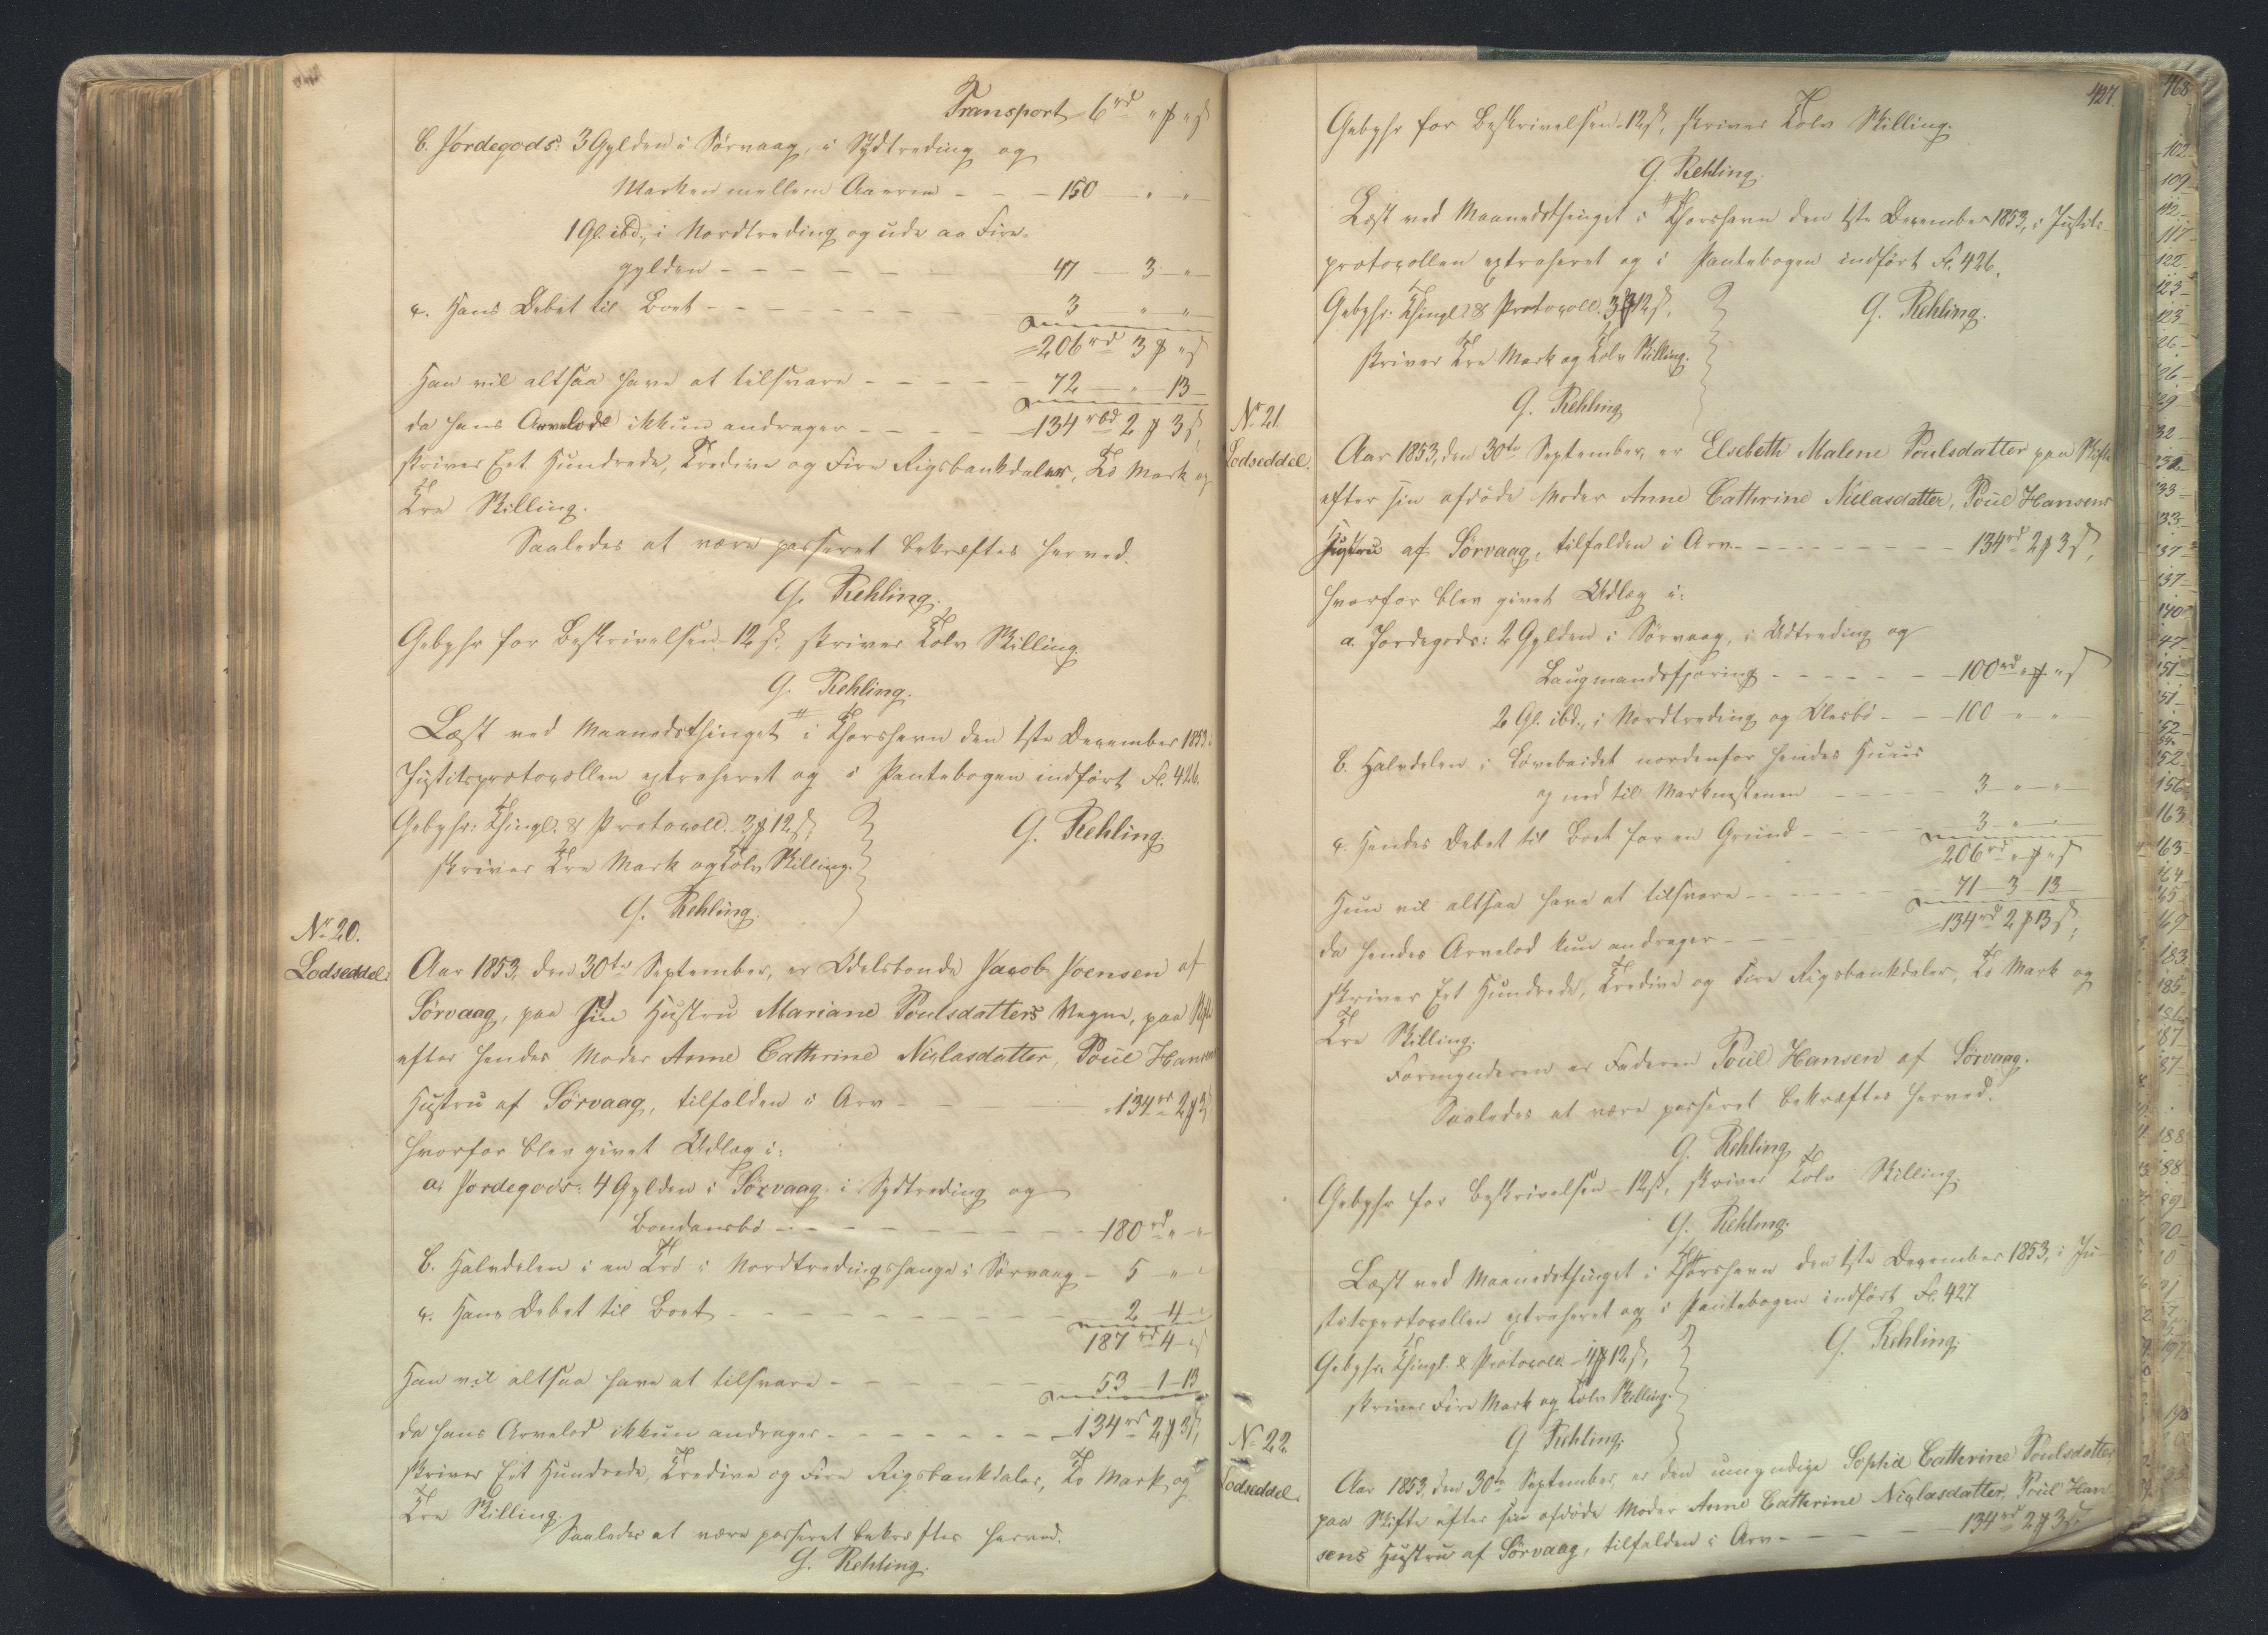 Transport 6 rd " ℔ " ß
b. Jordegods: 3 Gylden i Sörvaag, i Sydtreding og
Marken mellem Aaerne - - - 150 - " - "
1 Gl. ibd., i Nordtreding og ude aa Fire-
gylden - - - - - - - 47 - 3 - "
c. Hans Debet til Boet - - - - - - - 3 " - "
206 rd 3 ℔ " ß
Han vil altsaa have at tilsvare - - - - - 72 - " - 13
da hans Arvelod ikkun andrager - - - - - 134 rbd 2 ℔ 3 ß,
skriver Eet Hundrede, Tredive og Fire Rigsbankdaler, To Mark og
Tre Skilling.
Saaledes at være passeret bekræftes herved.
G. Rehling.
Gebyhr for Beskrivelsen 12 ß, skriver Tolv Skilling.
G. Rehling.
Læst ved Maanedsthinget i Thorshavn den 1ste December 1853.
Justitsprotocollen extraheret og i Pantebogen indført Fl. 426.
Gebyhr: Thingl. & Protocoll. 3 ℔ 12 ß,
G. Rehling.
skriver Tre Mark og Tolv Skilling.
G. Rehling.
No 20.
Lodseddel.
Aar 1853, den 30te September, er Odelsbonde Jacob Joensen af
Sörvaag, paa sin Hustru Mariane Poulsdatters Vegne, paa Skifte
efter hendes Moder Anne Cathrine Niclasdatter, Poul Hansens
Hustru af Sörvaag, tilfalden i Arv - - - 134 rd 2 ℔ 3 ß
hvorfor blev givet Udlæg i:
a. Jordegods: 4 Gylden i Sörvaag i Sydtreding og
Bondansbö - - - - - - - 180 rd " - "
b. Halvdelen i en Tro i Nordtredingshauge i Sörvaag - 5 - " - "
c. Hans Debet til Boet - - - - - - - 2 - 4 - "
187 rd 4 - " ß
Han vil altsaa have at tilsvare - - - - - - 53 - 1 - 13
da hans Arvelod ikkun andrager - - - - - - 134 rd 2 ℔ 3 ß,
skriver Eet Hundrede, Tredive og Fire Rigsbankdaler, To Mark og
Tre Skilling.
Saaledes at være passeret bekræftes herved.
G. Rehling.
427.
Gebyhr for Beskrivelsen 12 ß, skriver Tolv Skilling.
G. Rehling.
Læst ved Maanedsthinget i Thorshavn den 1ste December 1853, i Justits-
protocollen extraheret og i Pantebogen indført Fl. 426.
Gebyhr: Thingl. & Protocoll. 3 ℔ 12 ß,
G. Rehling.
skriver Tre Mark og Tolv Skilling.
G. Rehling
No 21.
Lodseddel.
Aar 1853, den 30te September, er Elsebeth Malene Poulsdatter paa Skifte
efter sin afdöde Moder Anne Cathrine Niclasdatter, Poul Hansens
Hustru af Sörvaag, tilfalden i Arv - - - - - - - 134 rd 2 ℔ 3 ß,
hvorfor blev givet Udlæg i:
a. Jordegods: 2 Gylden i Sörvaag, i Udtreding og
Laugmandsfjering - - - - - - 100 rd " ℔ " ß
2 Gl. ibd., i Nordtreding og - - 100 - " - "
b. Halvdelen i nordenfor hendes Huus
og ned til - - - - - 3 - " - "
c. Hendes Debet til Boet for en Grund - - - 3 - " - "
206 rd " ℔ " ß
Hun vil altsaa have at tilsvare - - - - - - 71 - 3 - 13
da hendes Arvelod kun andrager - - - - - 134 rd 2 ℔ 13 ß,
skriver Eet Hundrede, Tredive og Fire Rigsbankdaler, To Mark og
Tre Skilling.
Formynderen er Faderen Poul Hansen af Sörvaag.
Saaledes at være passeret bekræftes herved.
G. Rehling
Gebyhr for Beskrivelsen 12 ß, skriver Tolv Skilling.
G. Rehling.
Læst ved Maanedsthinget i Thorshavn den 1ste December 1853, i Ju-
stitsprotocollen extraheret og i Pantebogen indført Fl. 427
Gebyhr: Thingl. & Protocoll. 4 ℔ 12 ß,
G. Rehling.
skriver Fire Mark og Tolv Skilling.
G. Rehling.
No 22.
Lodseddel.
Aar 1853, den 30te September, er den umyndige Sophie Cathrine Poulsdatter
paa Skifte efter sin afdöde Moder Anne Cathrine Niclasdatter, Poul Han-
sens Hustru af Sörvaag, tilfalden i Arv - - - - - 134 rd 2 ℔ 3 ß